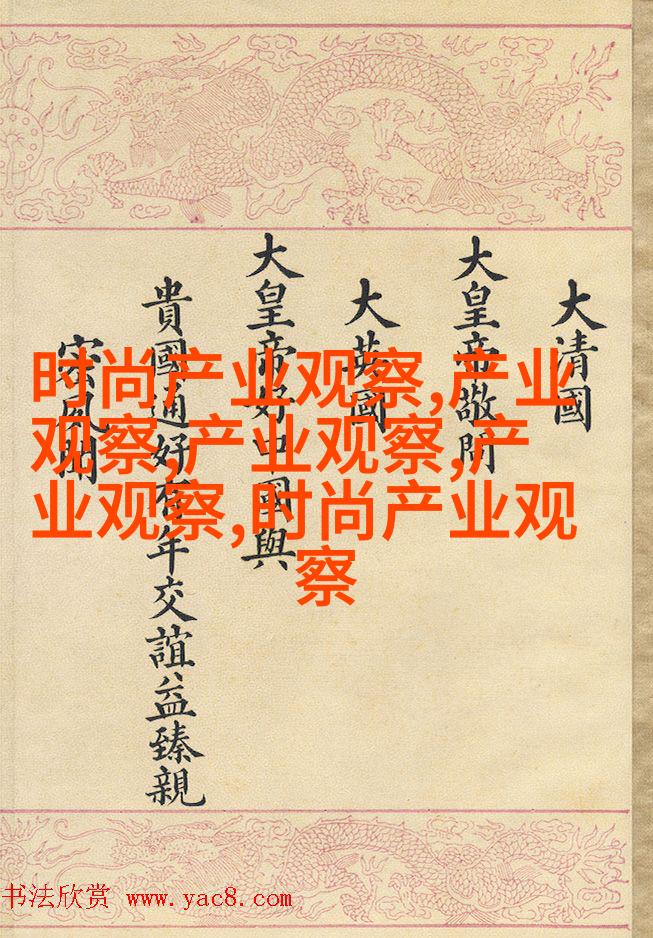 大清國
大皇帝敬問
大英國
大皇帝好中國與
貴國通好有年交誼益臻親
密風聞
时尚产业观察,产业
观察,产业观察,产
业观察,时尚产业观
察
书法欣赏 www.yac8.com